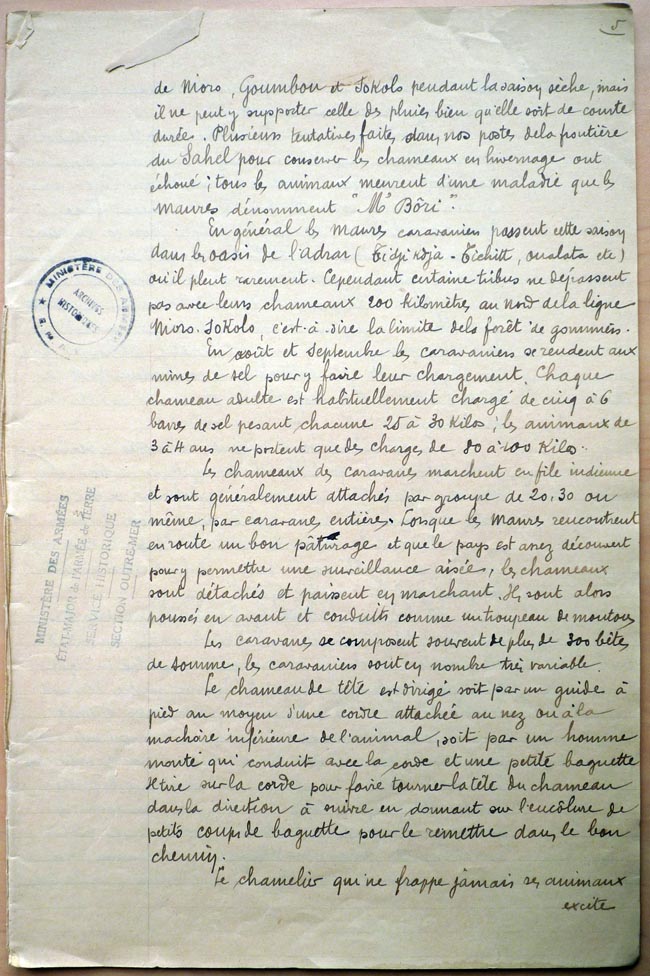 5
de Nioro, Goumbou et Sokolo pendant la saison sèche, mais
il ne peut y supporter celle des pluies bien qu'elle soit de courte
durée. Plusieurs tentatives faites dans nos postes de la frontière
du Sahel pour conserver les chameaux en hivernage ont
échoué ; tous les animaux meurent d'une maladie que les
Maures dénomment "M' Bôri".
En général les Maures caravaniers passent cette saison
dans les oasis de l'adrar (Tidjikdja - Tichitt, Oualata etc)
où il pleut rarement. Cependant certaine tribus ne dépassent
pas avec leurs chameaux 200 kilomètres au Nord de la ligne
Nioro. Sokolo, c'est-à-dire la limite de la forêt de gommiers.
En août et Septembre les caravaniers se rendent aux
mines de sel pour y faire leur chargement. Chaque
chameau adulte est habituellement chargé de cinq à 6
barres de sel pesant chacune 25 à 30 Kilos ; les animaux de
3 à 4 ans ne portent que des charges de 80 à 100 Kilos.
Les chameaux des caravanes marchent en file indienne
et sont généralement attachés par groupe de 20, 30 ou
même, par caravanes entières. Lorsque les Maures rencontrent
en route un bon pâturage et que le pays est assez découvert
pour y permettre une surveillance aisée, les chameaux
sont détachés et paissent en marchant. Ils sont alors
poussés en avant et conduits comme un troupeau de moutons
Les caravanes se composent souvent de plus de 300 bêtes
de somme, les caravaniers sont en nombre très variable.
Le chameau de tête est dirigé soit par un guide à
pied au moyen d'une corde attachée au nez ou à la
machoire inférieure de l'animal, soit par un homme
monté qui conduit avec la corde et une petite baguette
Il tire sur la corde pour faire tourner la tête du chameau
dans la direction à suivre en donnant sur l'encôlure de
petits coups de baguette pour le remettre dans le bon
chemin.
Le chamelier qui ne frappe jamais ses animaux
excite
MINISTÈRE DES ARMÉES
ARCHIVES
HISTORIQUES
MINISTÈRE DES ARMÉES
ÉTAT-MAJOR de l'ARMÉE de TERRE
SERVICE HISTORIQUE
SECTION OUTRE-MER